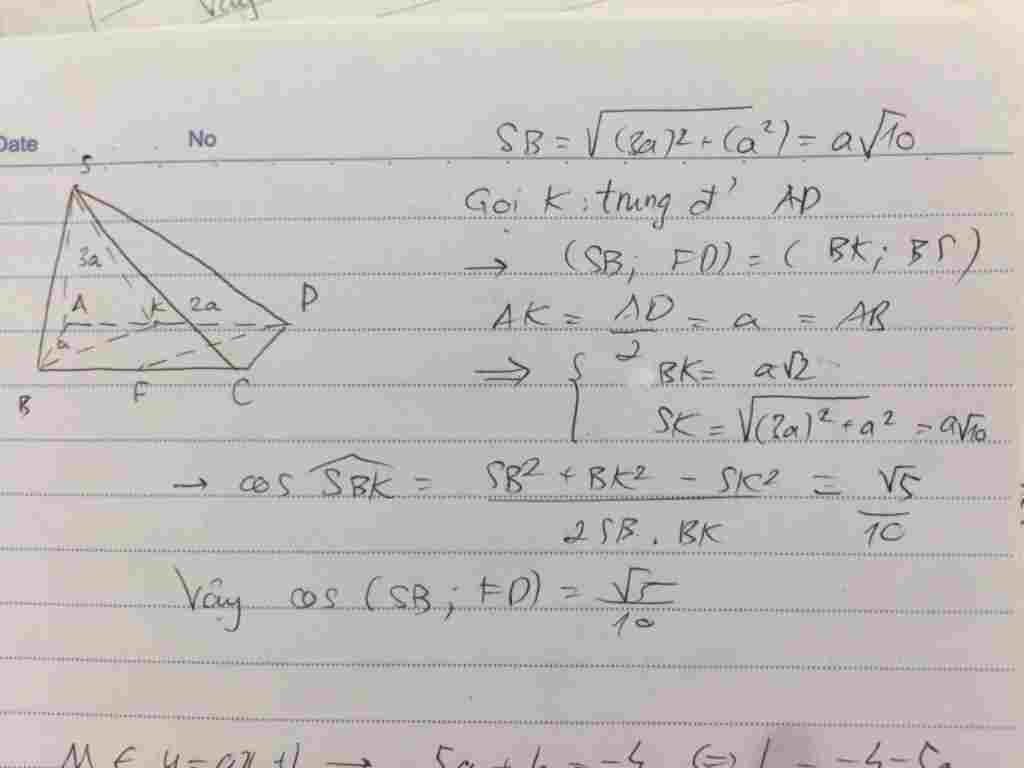 Vậy
Date
No
S
3a
A
K
2a
D
a
B
F
C
SB = √((3a)² + (a²) = a√10
Gọi K : trung đ' AD
→ (SB; FD) = (BK; BS)
AK = AD/2 = a = AB
⇒ { BK = a√2
SK = √((3a)² + a²) = a√10
→ cos SBK = (SB² + BK² - SK²)/(2SB . BK) = √5/10
Vậy cos (SB; FD) = √5/10
M ∈ y = ax + b → 5a + b = -4 ⇔ b = -4 - 5a